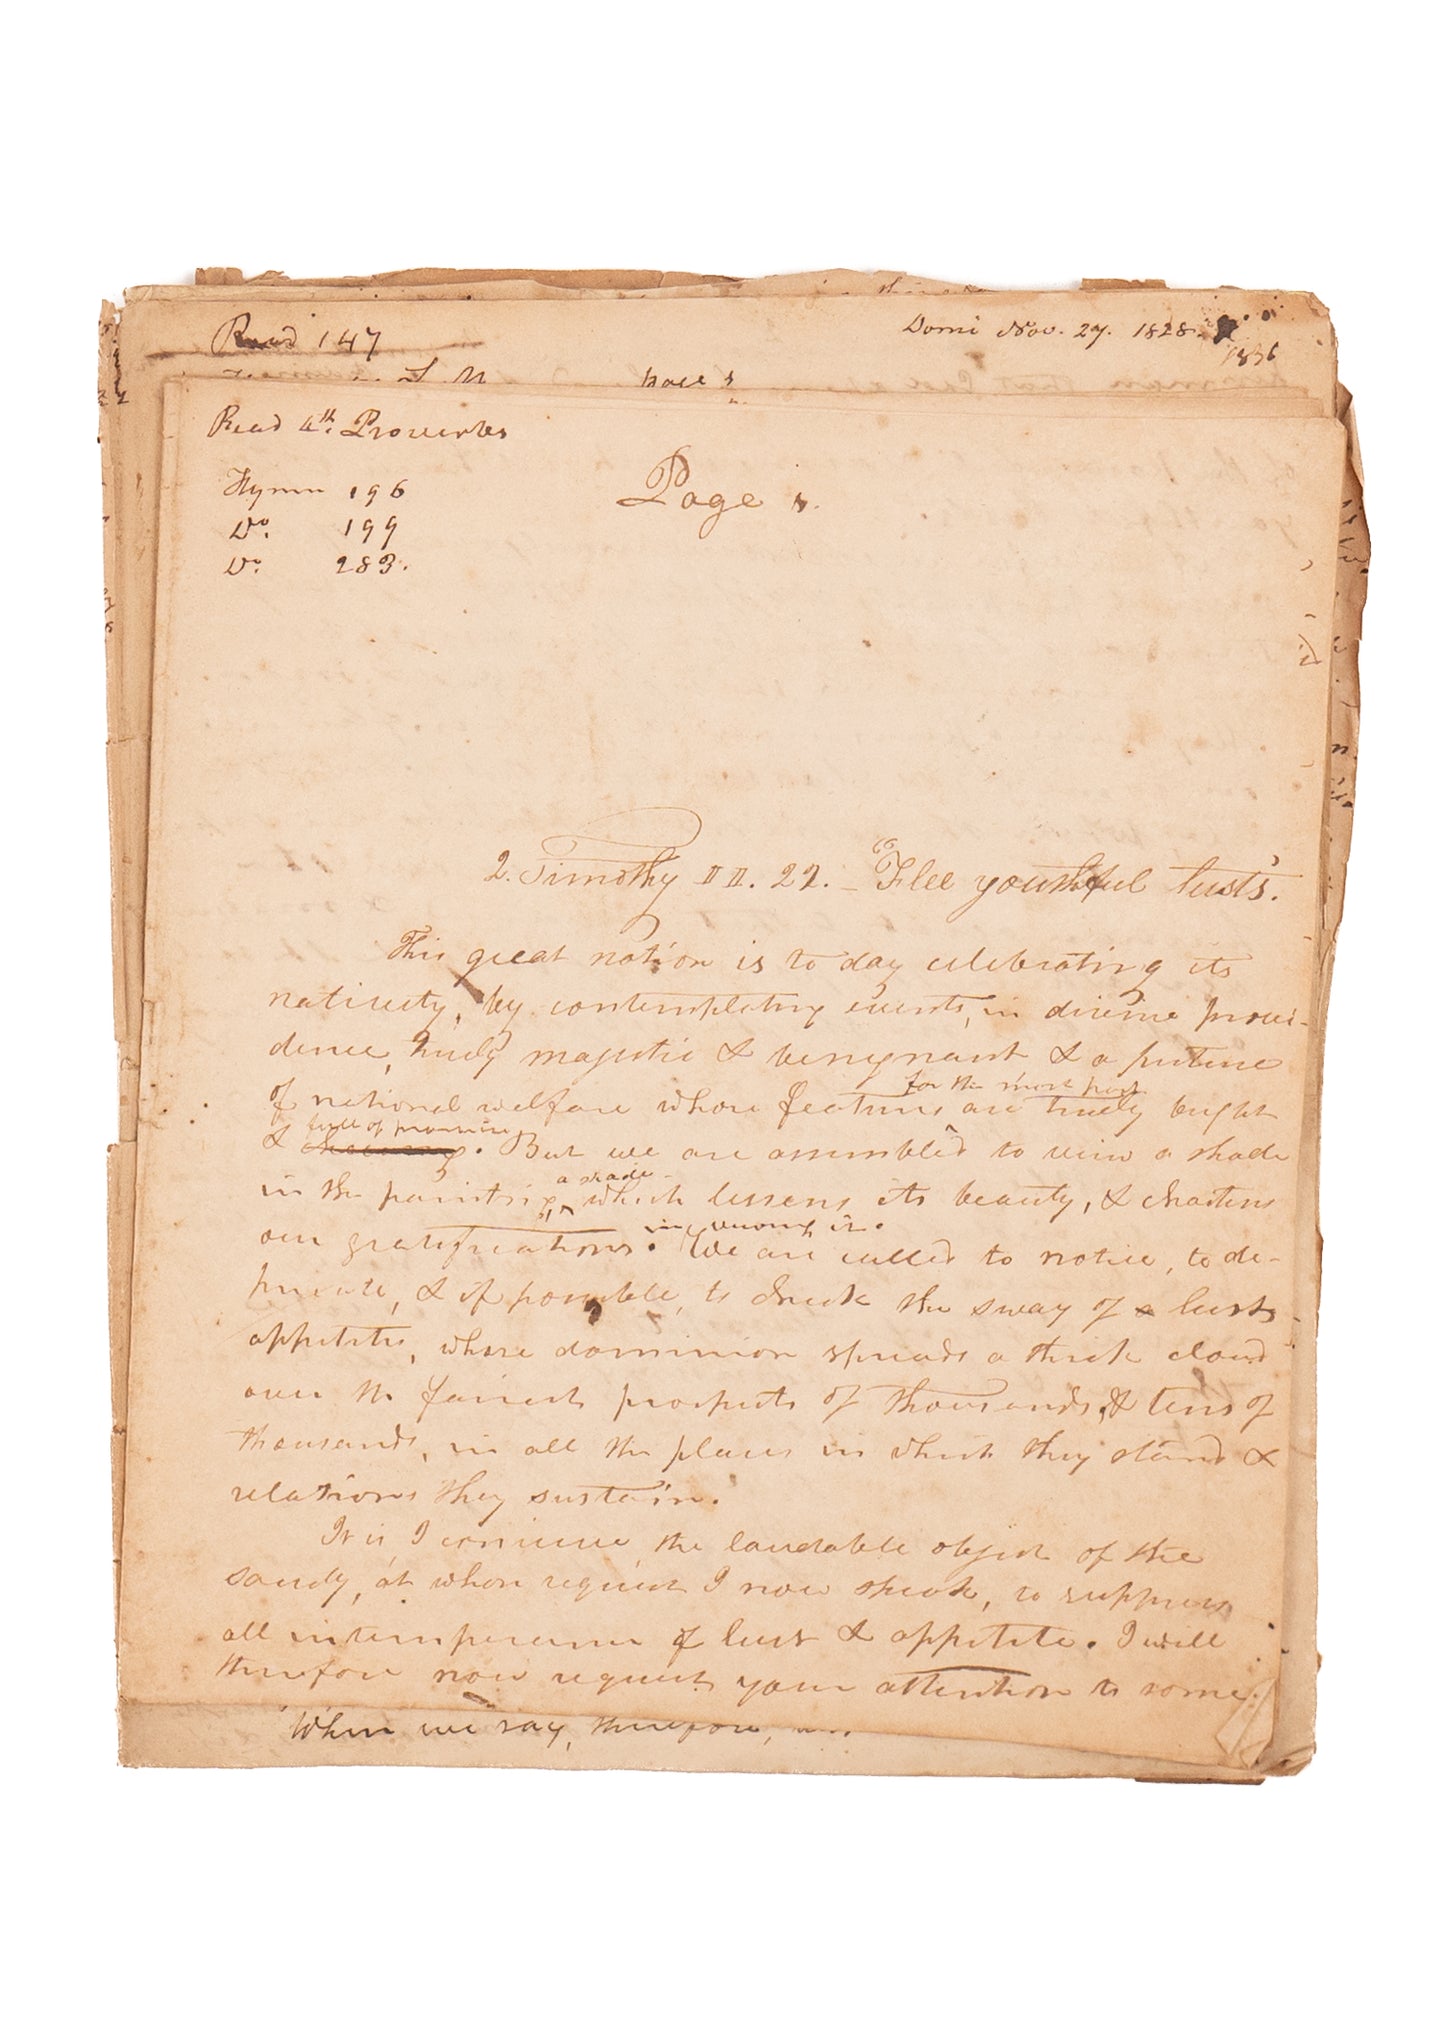 Read 147
Domi Nov. 27. 1828.
1836
Page 1
Read 4th. Proverbs
Hymn 196
Do. 199
Do. 283.
Page 1.
2. Timothy II. 22. – "Flee youthful lusts."
This great nation is to day celebrating its
nativity, by contemplating events, in divine provi-
dence, truly majestic & benignant & a picture
for the most part
of national welfare whose features are truly bright
full of promise
& cheering. But we are assembled to view a shade
a shade
in the painting, which lessens its beauty, & chastens
in viewing it.
our gratifications. We are called to notice, to de-
precate, & if possible, to check the sway of a lusts
appetites, whose dominion spreads a thick cloud
over the fairest prospects of thousands, & tens of
thousands, in all the places in which they stand &
relations they sustain.
It is I conceive the laudable object of the
society, at whose request I now speak, to suppress
all intemperance of lust & appetite. I will
therefore now request your attention to some
When we say, therefore,